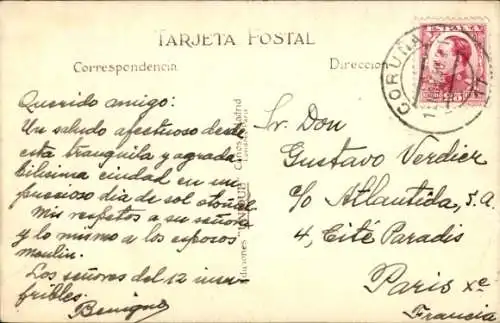 TARJETA POSTAL
Correspondencia
Dirección
CORUÑA
ESPAÑA
25
Querido amigo:
Un saludo afectuoso desde
esta tranquila y agrada
bilisima ciudad en un
precioso dia de sol otoñal
Mis respetos a su señora
y lo mismo a los esposos
Moulin.
Los señores del 12 inse-
fribles.
Benigno
Sr. Don
Gustavo Verdier
c/o Atlantida, S.A.
4, Cité Paradis
Paris Xe
Francia
Ediciones "UNIQUE"
Madrid